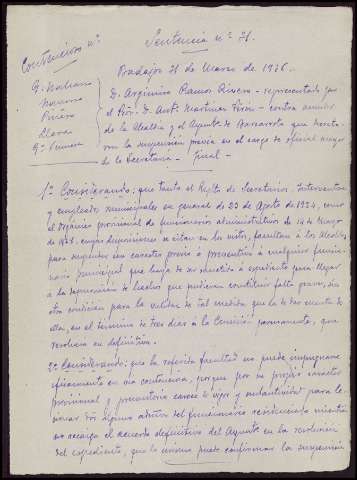 Contencioso nº
Sentencia nº 31.
Badajoz 31 de Marzo de 1936.
D. Argimiro Ramos Rivero - representado por
el Pror. D. Antº Martínez Pirón - contra acuerdo
de la Alcaldía y el Ayuntº de Barcarrota que decreta-
ron la suspensión previa en el cargo de oficial mayor
de la Secretaría - Final -
Navarro
Piñero
Llanes
1º Considerando: que tanto el Regltº de Secretarios, Interventores
y empleados municipales en general de 23 de Agosto de 1924, como
el Orgánico provisional de funcionarios administrativos de 14 de Mayo
de 1928, cuyas disposiciones se citan en los vistos, facultan á los Alcaldes
para suspender con carácter previo ó preventivo á cualquier funcio-
nario municipal que haya de ser sometido á expediente para llegar
á la depuración de hechos que pudieran constituir falta grave, sin
otra condición para la validez de tal medida que la de dar cuenta de
ella, en el término de tres días á la Comisión permanente, que
resolverá en definitiva.
2º Considerando: que la referida facultad no puede impugnarse
eficazmente en vía contenciosa, porque por su propio carácter
provisional y precautorio carece de vigor y sustantividad para le-
sionar dro alguno activo del funcionario residenciado mientras
no recaiga el acuerdo definitivo del Ayuntº en la resolución
del expediente, que lo mismo puede confirmar la suspensión